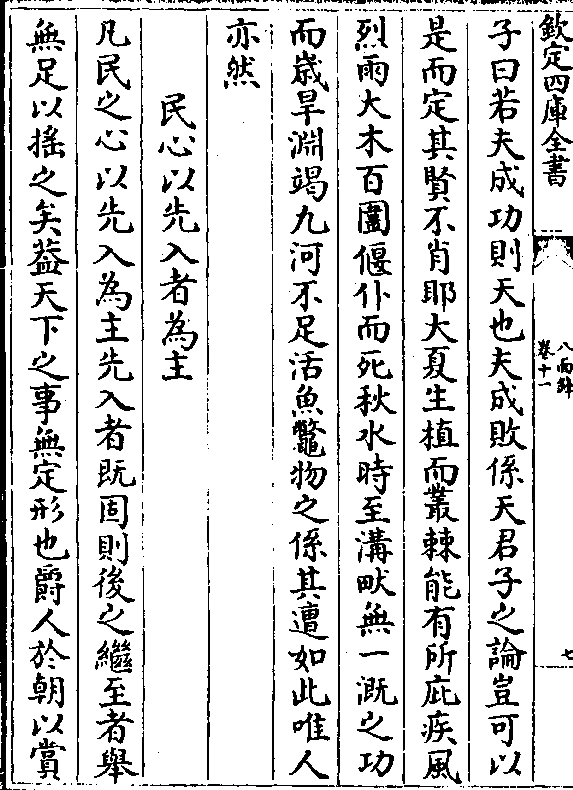 欽定四庫全書
八面鋒
卷十一
七
子曰若夫成功則天也夫成敗係天君子之論豈可以
是而定其賢不肖耶大夏生植而叢棘能有所庇疾風
烈雨大木百圍偃仆而死秋水時至溝畎無一溉之功
而歳旱淵竭九河不足活魚鼈物之係其遭如此唯人
亦然
民心以先入者為主
凡民之心以先入為主先入者既固則後之繼至者舉
無足以搖之矣葢天下之事無定形也爵人於朝以賞